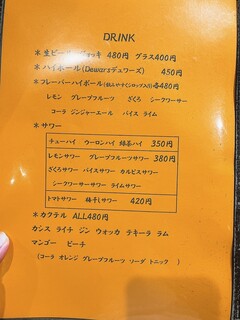 DRINK
＊生ビール ジョッキ 480円 グラス400円
＊ハイボール(Dewarsデュワーズ) 450円
＊フレーバーハイボール(飲みやすくシロップ入り)各480円
レモン グレープフルーツ ざくろ シークワーサー
コーラ ジンジャーエール パイス ライム
＊サワー
チューハイ ウーロンハイ 緑茶ハイ 350円
レモンサワー グレープフルーツサワー 380円
ざくろサワー バイスサワー カルピスサワー
シークワーサーサワー ライムサワー
トマトサワー 梅干しサワー 420円
＊カクテル ALL480円
カシス ライチ ジン ウォッカ テキーラ ラム
マンゴー ピーチ
(コーラ オレンジ グレープフルーツ ソーダ トニック )